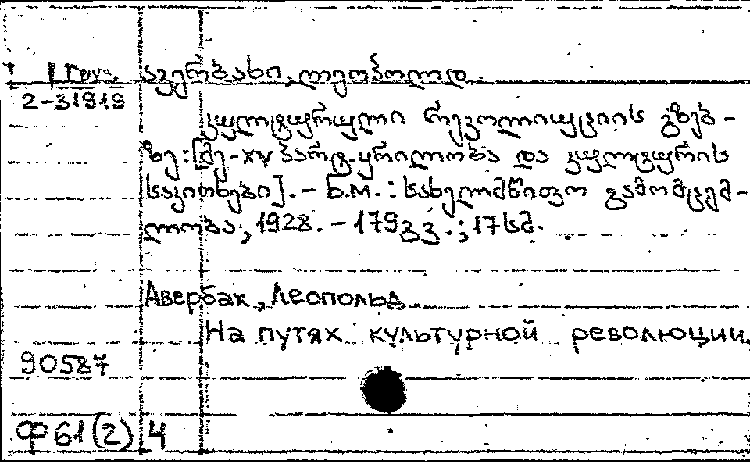 1 Груз. ავერბახი, ლეოპოლდ.
2-31919
კულტურული რევოლიუციის გზებ-
ზე: [მე-XV პარტ-ყრილობა და კულტურის
საკითხები]. – Б.м. : სახელმწიფო გამომცემ-
ლობა, 1928. – 179 გვ. ; 17 სმ.
Авербах, Леопольд
На путях культурной революции.
90587
Ф 61(2) Ч